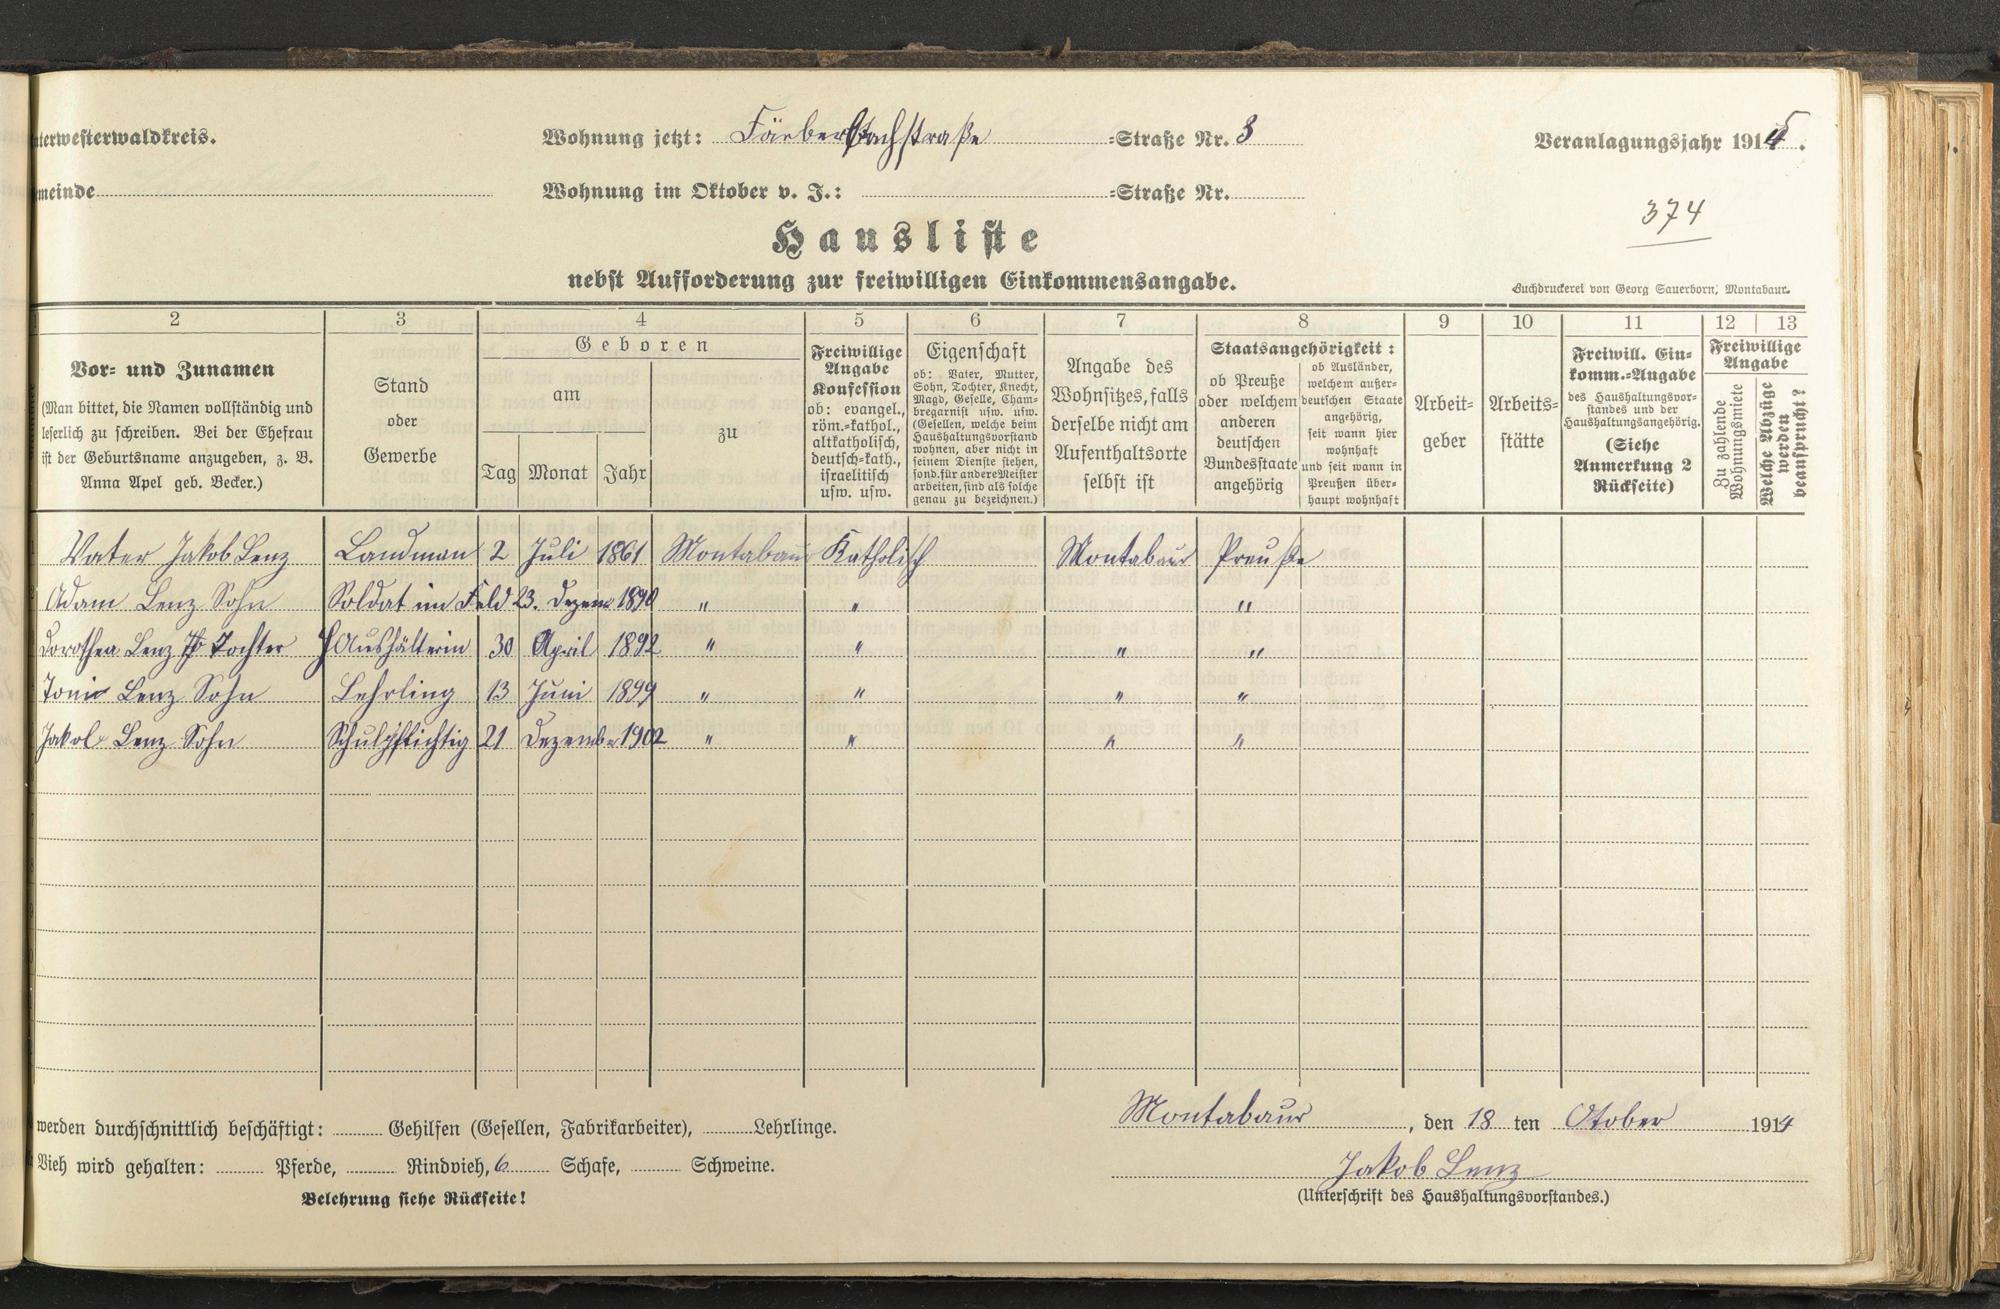 nterwesterwaldkreis. Wohnung jetzt: Färberbachstraße =Straße Nr. 3 Veranlagungsjahr 1915.
meinde Wohnung im Oktober v. J.: =Straße Nr.
374
Hausliste
nebst Aufforderung zur freiwilligen Einkommensangabe.
Buchdruckerei von Georg Sauerborn, Montabaur.
2 3 4 5 6 7 8 9 10 11 12 13
Vor= und Zunamen
(Man bittet, die Namen vollständig und
leserlich zu schreiben. Bei der Ehefrau
ist der Geburtsname anzugeben, z. B.
Anna Apel geb. Becker.)
Stand
oder
Gewerbe
Geboren
am
Tag Monat Jahr
zu
Freiwillige
Angabe
Konfession
ob: evangel.,
röm.=kathol.,
altkatholisch,
deutsch=kath.,
israelitisch
usw. usw.
Eigenschaft
ob: Vater, Mutter,
Sohn, Tochter, Knecht,
Magd, Geselle, Cham-
bregarnist usw. usw.
(Gesellen, welche beim
Haushaltungsvorstand
wohnen, aber nicht in
seinem Dienste stehen,
sond. für andere Meister
arbeiten, sind als solche
genau zu bezeichnen.)
Angabe des
Wohnsitzes, falls
derselbe nicht am
Aufenthaltsorte
selbst ist
Staatsangehörigkeit:
ob Preuße
oder welchem
anderen
deutschen
Bundesstaate
angehörig
ob Ausländer,
welchem außer-
deutschen Staate
angehörig,
seit wann hier
wohnhaft
und seit wann in
Preußen über-
haupt wohnhaft
Arbeit=
geber
Arbeits=
stätte
Freiwill. Ein-
komm.=Angabe
des Haushaltungsvor-
standes und der
Haushaltungsangehörig.
(Siehe
Anmerkung 2
Rückseite)
Freiwillige
Angabe
Zu zahlende
Wohnungsmiete
Welche Abzüge
werden
beansprucht?
Vater Jakob Lenz Landman 2 Juli 1861 Montabaur Katholisch Montabaur Preuße
Adam Lenz Sohn Soldat im Feld 23. Dezem 1890 " " "
Dorothea Lenz Tochter Haushälterin 30 April 1892 " " " "
Toni Lenz Sohn Lehrling 13 Juni 1899 " " " "
Jakob Lenz Sohn Schulpflichtig 21 Dezember 1902 " " " "
werden durchschnittlich beschäftigt: Gehilfen (Gesellen, Fabrikarbeiter), Lehrlinge.
Vieh wird gehalten: Pferde, Rindvieh, 6 Schafe, Schweine.
Belehrung siehe Rückseite!
Montabaur, den 18 ten Otober 1914
Jakob Lenz
(Unterschrift des Haushaltungsvorstandes.)